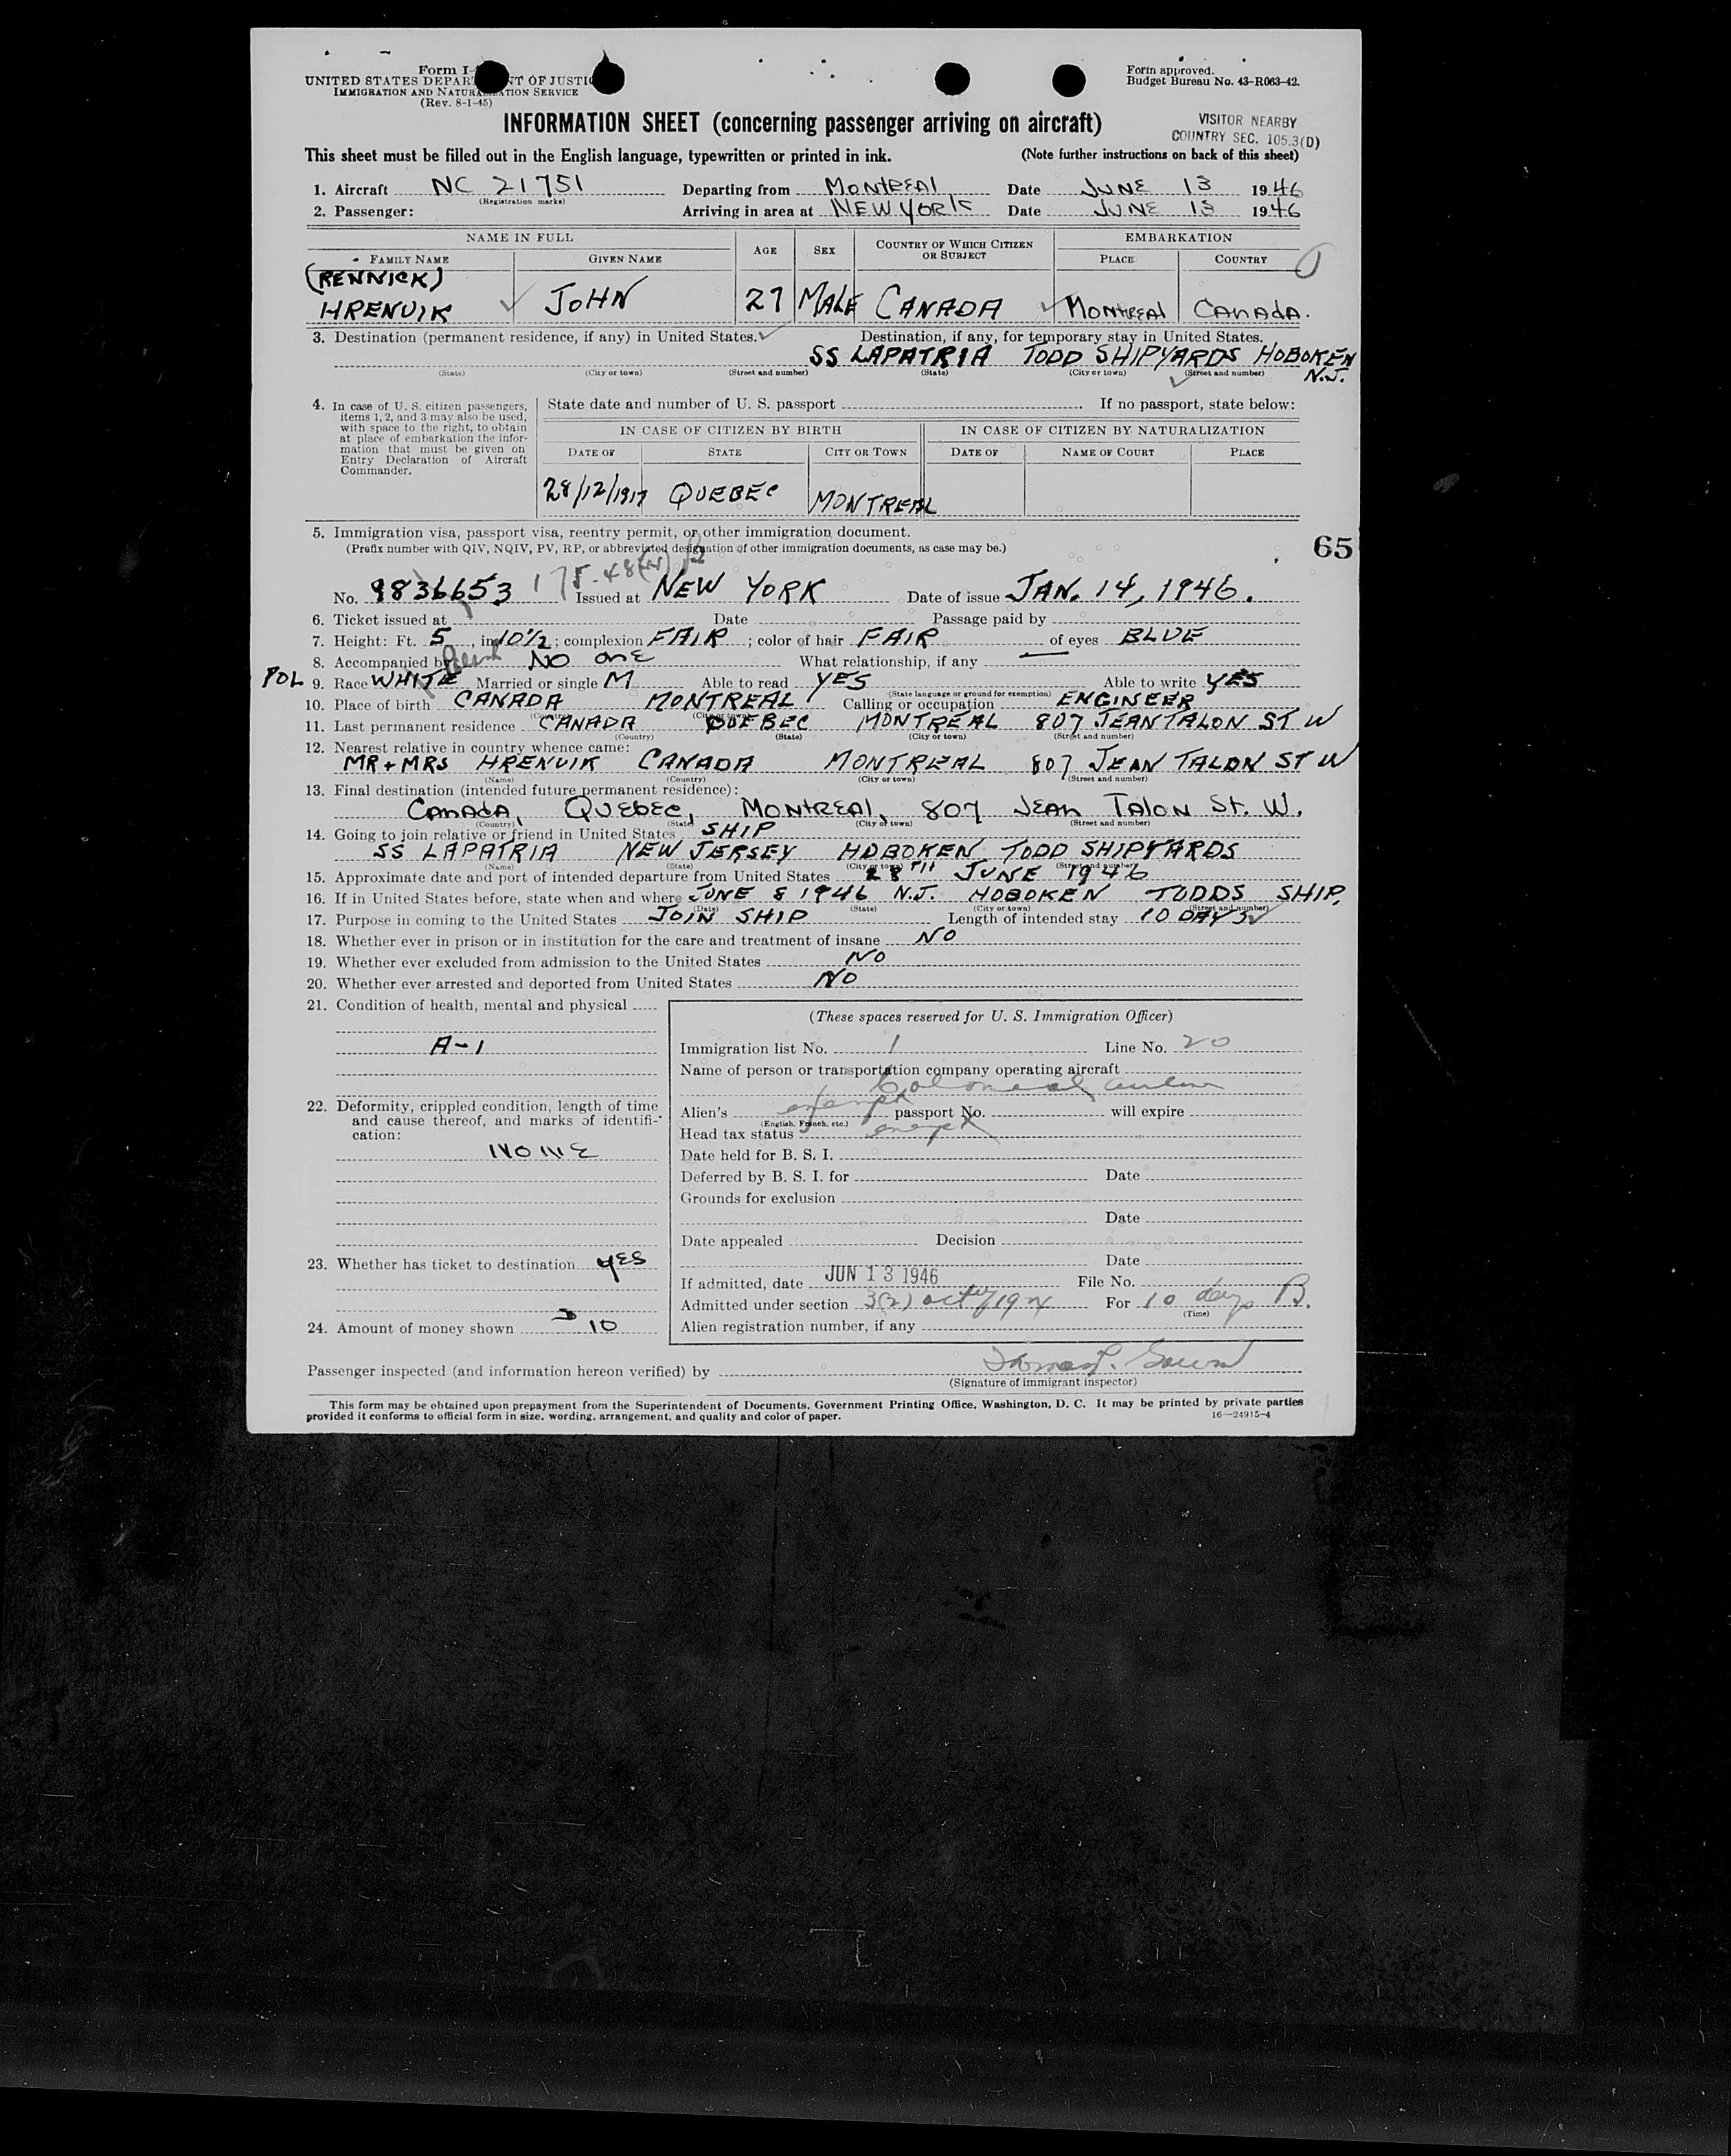 Form I-
UNITED STATES DEPAR NT OF JUSTIC
IMMIGRATION AND NATURALIZATION SERVICE
(Rev. 8-1-45)
Form approved.
Budget Bureau No. 43-R063-42.
INFORMATION SHEET (concerning passenger arriving on aircraft)
VISITOR NEARBY
COUNTRY SEC. 105.3(D)
This sheet must be filled out in the English language, typewritten or printed in ink. (Note further instructions on back of this sheet)
1. Aircraft NC 21751 Departing from MONTREAL Date JUNE 13 1946
(Registration marks)
2. Passenger: Arriving in area at NEW YORK Date JUNE 13 1946
NAME IN FULL AGE SEX COUNTRY OF WHICH CITIZEN OR SUBJECT EMBARKATION
FAMILY NAME GIVEN NAME PLACE COUNTRY
(RENNICK)
HRENUIK JOHN 27 MALE CANADA MONTREAL CANADA.
3. Destination (permanent residence, if any) in United States. Destination, if any, for temporary stay in United States.
SS LAPATRIA TODD SHIPYARDS HOBOKEN
N.J.
(State) (City or town) (Street and number) (State) (City or town) (Street and number)
4. In case of U. S. citizen passengers, items 1, 2, and 3 may also be used, with space to the right, to obtain at place of embarkation the information that must be given on Entry Declaration of Aircraft Commander.
State date and number of U. S. passport If no passport, state below:
IN CASE OF CITIZEN BY BIRTH IN CASE OF CITIZEN BY NATURALIZATION
DATE OF STATE CITY OR TOWN DATE OF NAME OF COURT PLACE
28/12/1917 QUEBEC MONTREAL
5. Immigration visa, passport visa, reentry permit, or other immigration document.
(Prefix number with QIV, NQIV, PV, RP, or abbreviated designation of other immigration documents, as case may be.)
65
No. 9836653 Issued at NEW YORK Date of issue JAN. 14, 1946.
6. Ticket issued at Date Passage paid by
7. Height: Ft. 5, in. 10 1/2; complexion FAIR; color of hair FAIR of eyes BLUE
8. Accompanied by NO ONE What relationship, if any —
POL 9. Race WHITE Married or single M Able to read YES Able to write YES
(State language or ground for exemption)
10. Place of birth CANADA MONTREAL Calling or occupation ENGINEER
(Country) (City or town)
11. Last permanent residence CANADA QUEBEC MONTREAL 807 JEAN TALON ST W
(Country) (State) (City or town) (Street and number)
12. Nearest relative in country whence came:
MR + MRS HRENUIK CANADA MONTREAL 807 JEAN TALON ST W
(Name) (Country) (City or town) (Street and number)
13. Final destination (intended future permanent residence):
CANADA, QUEBEC, MONTREAL, 807 JEAN TALON St. W.
(Country) (State) (City or town) (Street and number)
14. Going to join relative or friend in United States SHIP
SS LAPATRIA NEW JERSEY HOBOKEN TODD SHIPYARDS
(Name) (State) (City or town) (Street and number)
15. Approximate date and port of intended departure from United States 28TH JUNE 1946
16. If in United States before, state when and where JUNE 8 1946 N.J. HOBOKEN TODDS SHIP.
(Date) (State) (City or town) (Street and number)
17. Purpose in coming to the United States JOIN SHIP Length of intended stay 10 DAYS
18. Whether ever in prison or in institution for the care and treatment of insane NO
19. Whether ever excluded from admission to the United States NO
20. Whether ever arrested and deported from United States NO
21. Condition of health, mental and physical
A-1
22. Deformity, crippled condition, length of time and cause thereof, and marks of identification:
NONE
23. Whether has ticket to destination YES
24. Amount of money shown 10
(These spaces reserved for U. S. Immigration Officer)
Immigration list No. 1 Line No. 20
Name of person or transportation company operating aircraft
Colonial
Alien's exempt passport No. will expire
(English, French, etc.)
Head tax status exempt
Date held for B. S. I.
Deferred by B. S. I. for Date
Grounds for exclusion
Date
Date appealed Decision
Date
If admitted, date JUN 13 1946 File No.
Admitted under section 3(2) act 1924 For 10 days B.
(Time)
Alien registration number, if any
Passenger inspected (and information hereon verified) by
(Signature of immigrant inspector)
This form may be obtained upon prepayment from the Superintendent of Documents, Government Printing Office, Washington, D. C. It may be printed by private parties
provided it conforms to official form in size, wording, arrangement, and quality and color of paper. 16—24915-4